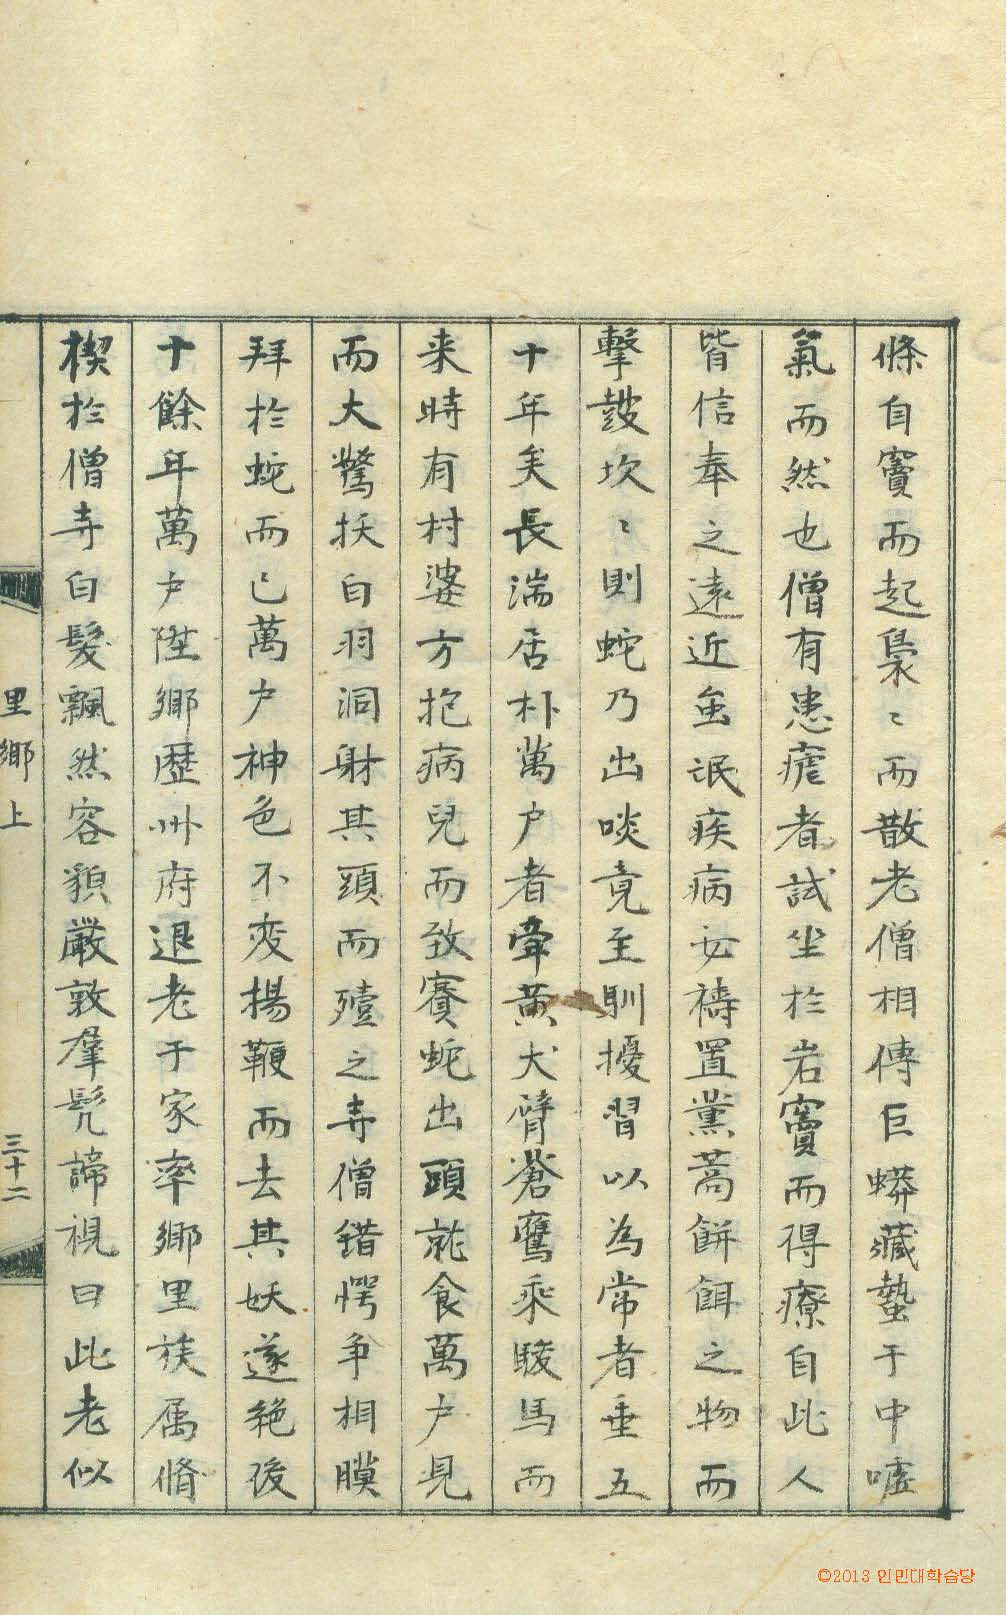 倏自竇而起裊〻而散老僧相傳巨蟒藏蟄于中噓
氣而然也僧有患瘧者試坐於岩竇而得療自此人
皆信奉之遠近甿氓疾病必禱置薰蒿餅餌之物而
擊鼓坎〻則蛇乃出啖竟至馴擾習以為常者垂五
十年矣長湍居朴萬户者牽黃犬臂蒼鷹乘駿馬而
来時有村婆方抱病兒而致賽蛇出頭就食萬户見
而大驚抶白羽洞射其頭而殪之寺僧錯愕争相膜
拜於蛇而已萬户神色不变揚鞭而去其妖遂絶後
十餘年萬户陞鄉歷州府退老于家率鄉里族属脩
禊於僧寺白髮飄然容貌嚴敦羣髡諦視曰此老似
里鄉上
三十二
©2013 인민대학습당